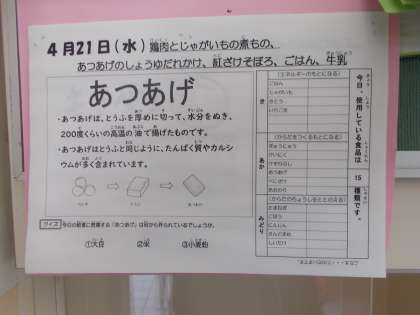 4月21日(水) 鶏肉とじゃがいもの煮もの、
あつあげのしょうゆだれかけ、紅ざけそぼろ、ごはん、牛乳
あつあげ
・あつあげは、とうふを厚めに切って、水分をぬき、
200度くらいの高温の油で揚げたものです。
・あつあげはとうふと同じように、たんぱく質やカルシ
ウムが多く含まれています。
クイズ 今日の給食に登場する「あつあげ」は何から作られているでしょうか。
①大豆 ②米 ③小麦粉
今日、使用している食品は 15 種類です。
き
(エネルギーのもとになる)
ごはん
じゃがいも
さとう
あか
(からだをつくるもとになる)
ぎゅうにゅう
けいにく
あつあげ
みどり
(からだのちょうしをととのえる)
たまねぎ
ごぼう
にんじん